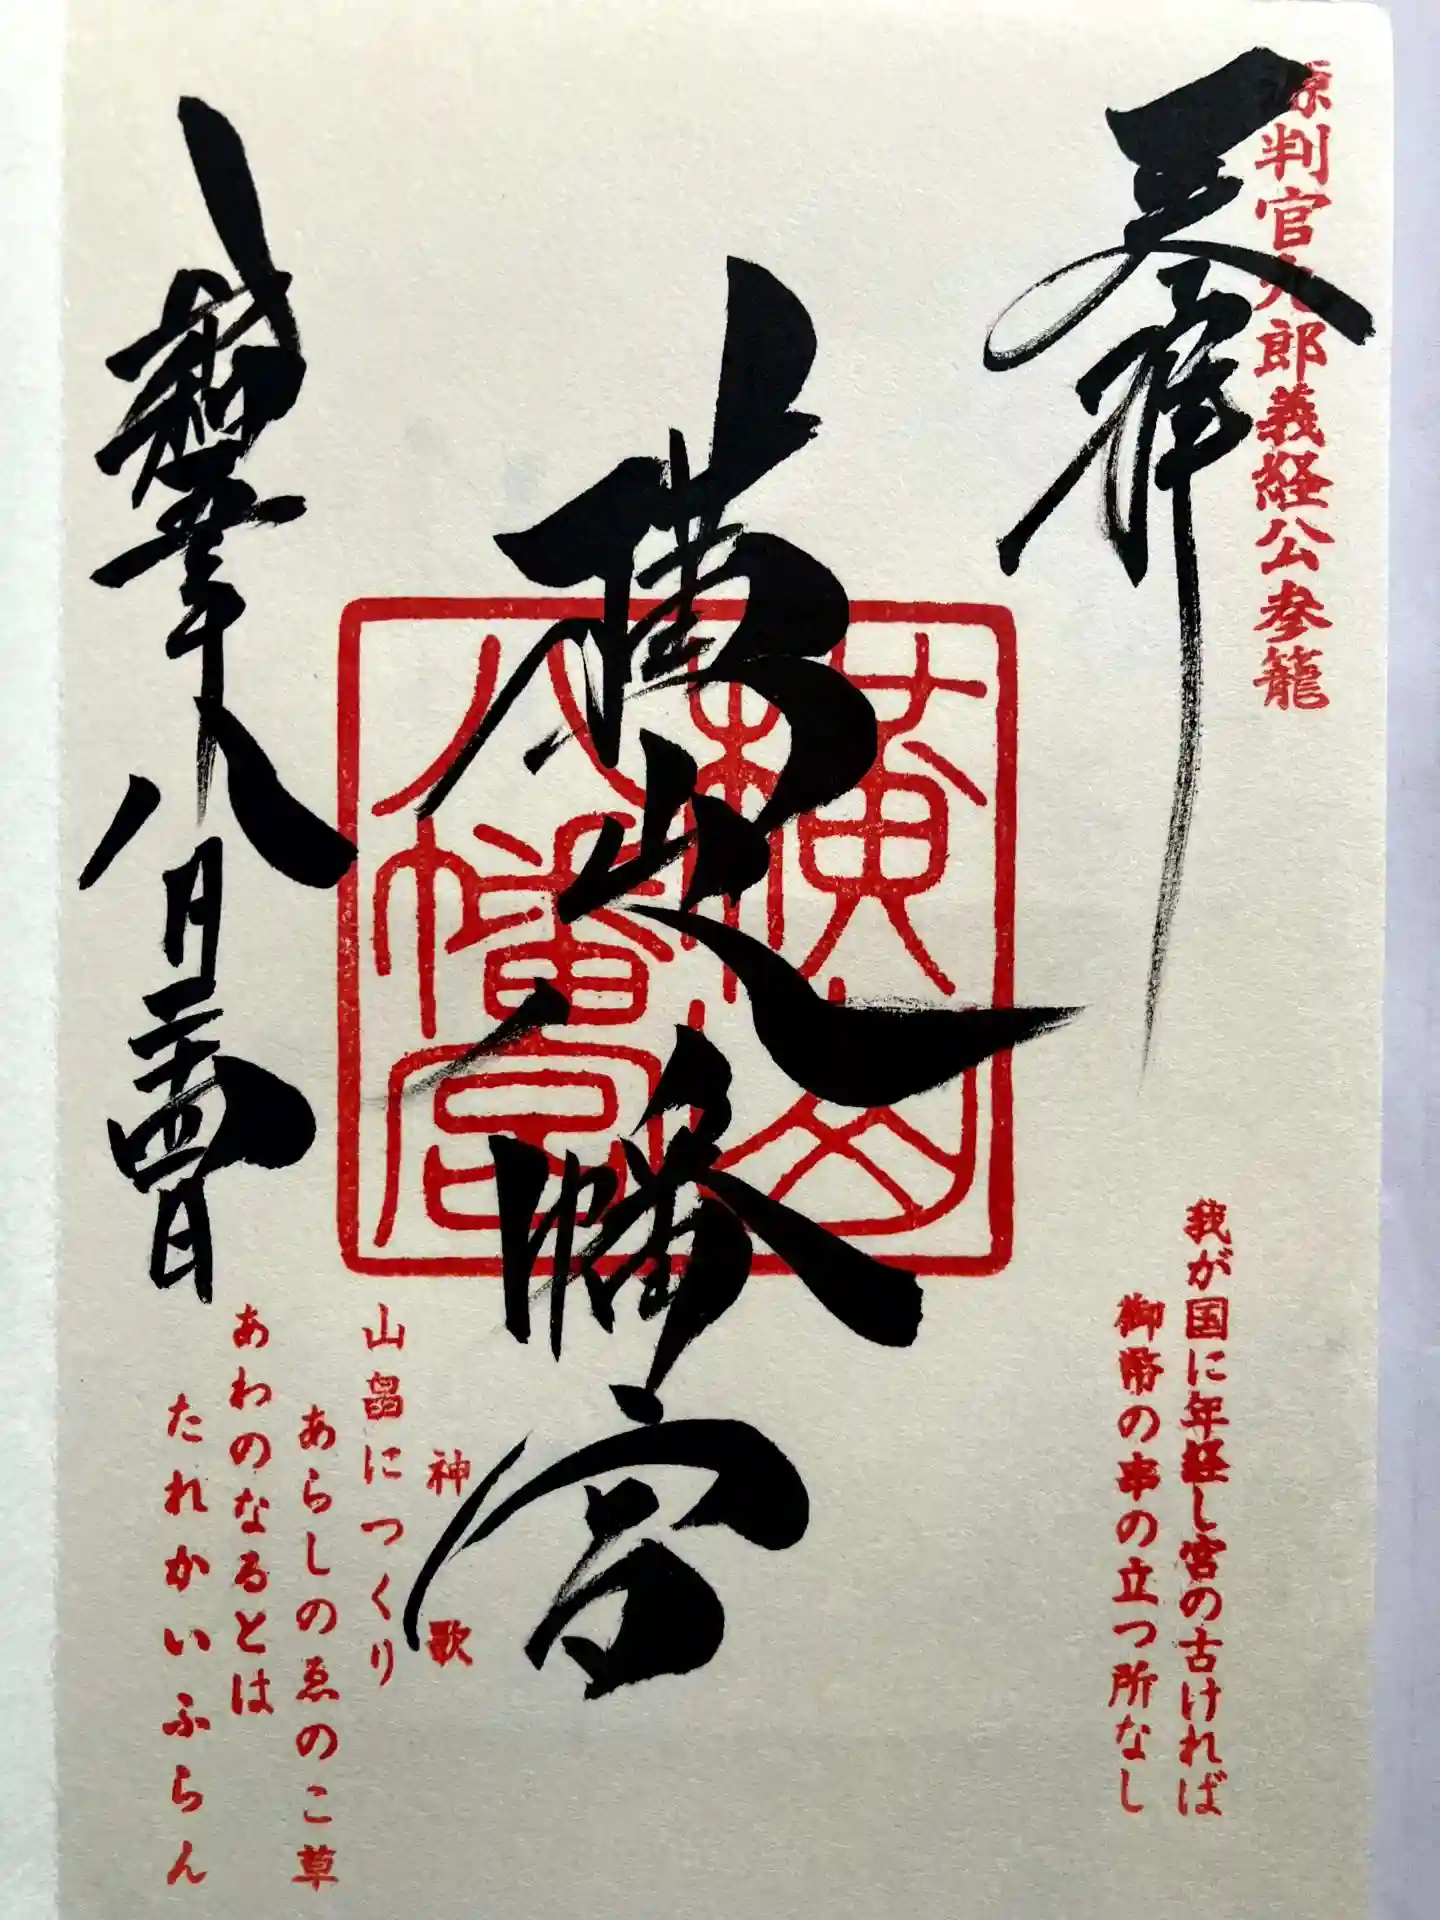 源判官九郎義経公参籠
奉拝
我が国に年経し宮の古ければ
御幣の串の立つ所なし
横山八幡宮
横山八幡宮
神歌
山畠につくり
あらしのゑのこ草
あわのなるとは
たれかいふらん
令和五年八月二十四日